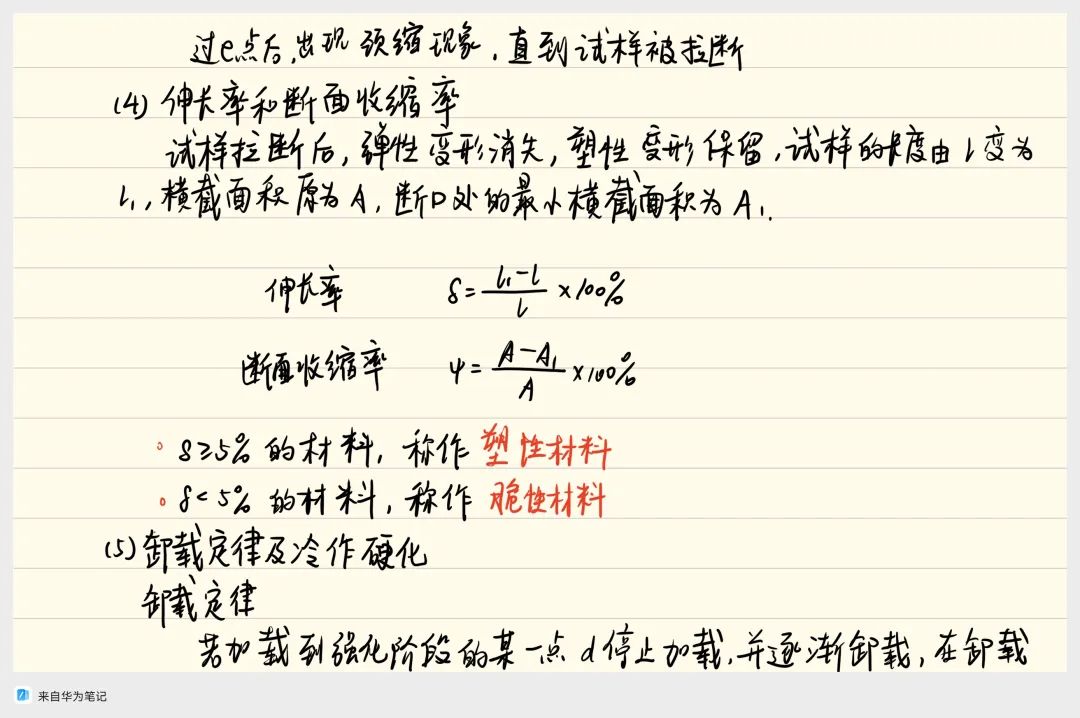 过e点后,出现颈缩现象,直到试样被拉断
(4) 伸长率和断面收缩率
试样拉断后,弹性变形消失,塑性变形保留,试样的长度由l变为
l₁,横截面积原为A,断口处的最小横截面积为A₁.
伸长率 δ=(l₁-l)/l ×100%
断面收缩率 ψ=(A-A₁)/A ×100%
。δ≥5%的材料,称作塑性材料
。δ<5%的材料,称作脆性材料
(5)卸载定律及冷作硬化
卸载定律
若加载到强化阶段的某一点d停止加载,并逐渐卸载,在卸载
来自华为笔记